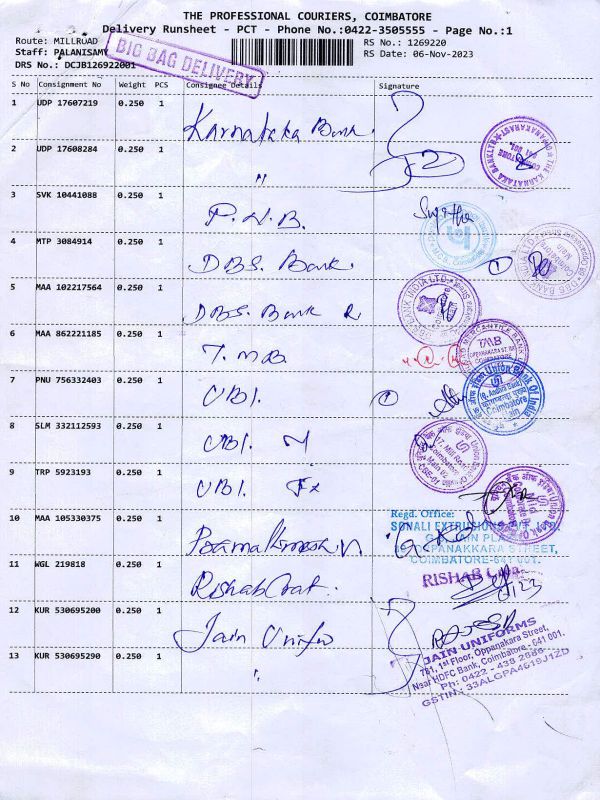 THE PROFESSIONAL COURIERS, COIMBATORE
Delivery Runsheet - PCT - Phone No.:0422-3505555 - Page No.:1
Route: MILLROAD
RS No.: 1269220
Staff: PALANISAMY
RS Date: 06-Nov-2023
DRS No.: DCJB126922001
BIG BAG DELIVERY
S No Consignment No Weight PCS Consignee Details Signature
1 UDP 17607219 0.250 1 Karnataka Bank
2 UDP 17608284 0.250 1 "
3 SVK 10441088 0.250 1 P.N.B. Sujitha
4 MTP 3084914 0.250 1 DBS. Bank
5 MAA 102217564 0.250 1 DBS. Bank R
6 MAA 862221185 0.250 1 T.MB
7 PNU 756332403 0.250 1 UBI.
8 SLM 332112593 0.250 1 UBI. M
9 TRP 5923193 0.250 1 UBI Fx
10 MAA 105330375 0.250 1
Regd. Office:
SONALI EXTRUSIONS PVT. LTD.
OPPANAKKARA STREET,
COIMBATORE-641 001.
11 WGL 219818 0.250 1
RISHAB
12 KUR 530695200 0.250 1 Jain Unifo
13 KUR 530695290 0.250 1 "
JAIN UNIFORMS
781, 1st Floor, Oppanakara Street,
Near HDFC Bank, Coimbatore - 641 001.
Ph: 0422 - 438 2686
GSTIN : 33ALGPA4619J1ZD